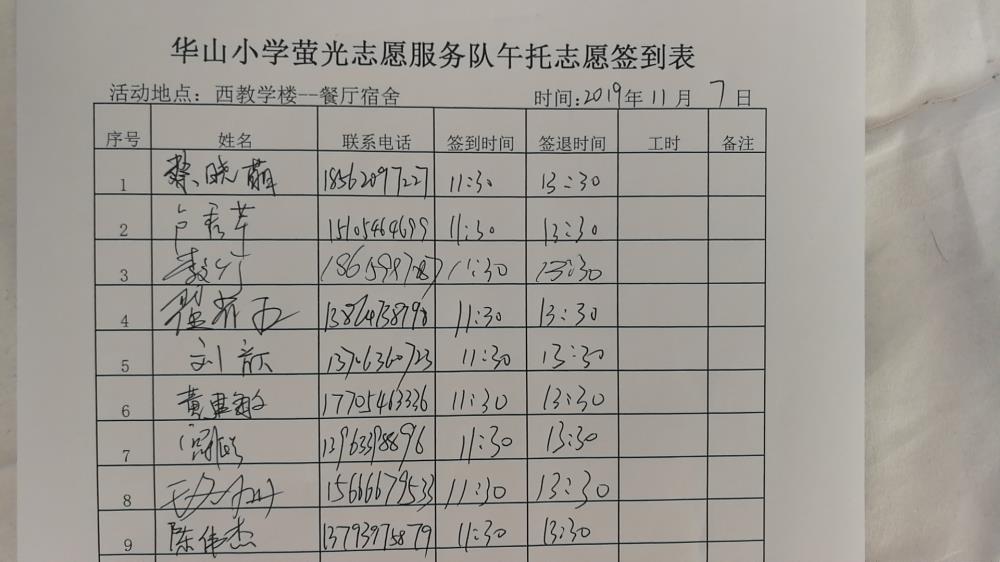 华山小学萤光志愿服务队午托志愿签到表
活动地点：西教学楼--餐厅宿舍 时间:2019年11月7日
序号 姓名 联系电话 签到时间 签退时间 工时 备注
1 蔡晓萌 18562097227 11:30 13:30
2 卢秀萍 15105464699 11:30 13:30
3 11:30 13:30
4 11:30 13:30
5 刘歆 13706360723 11:30 13:30
6 黄 17705463336 11:30 13:30
7 11:30 13:30
8 15666679533 11:30 13:30
9 陈伟杰 13793975879 11:30 13:30